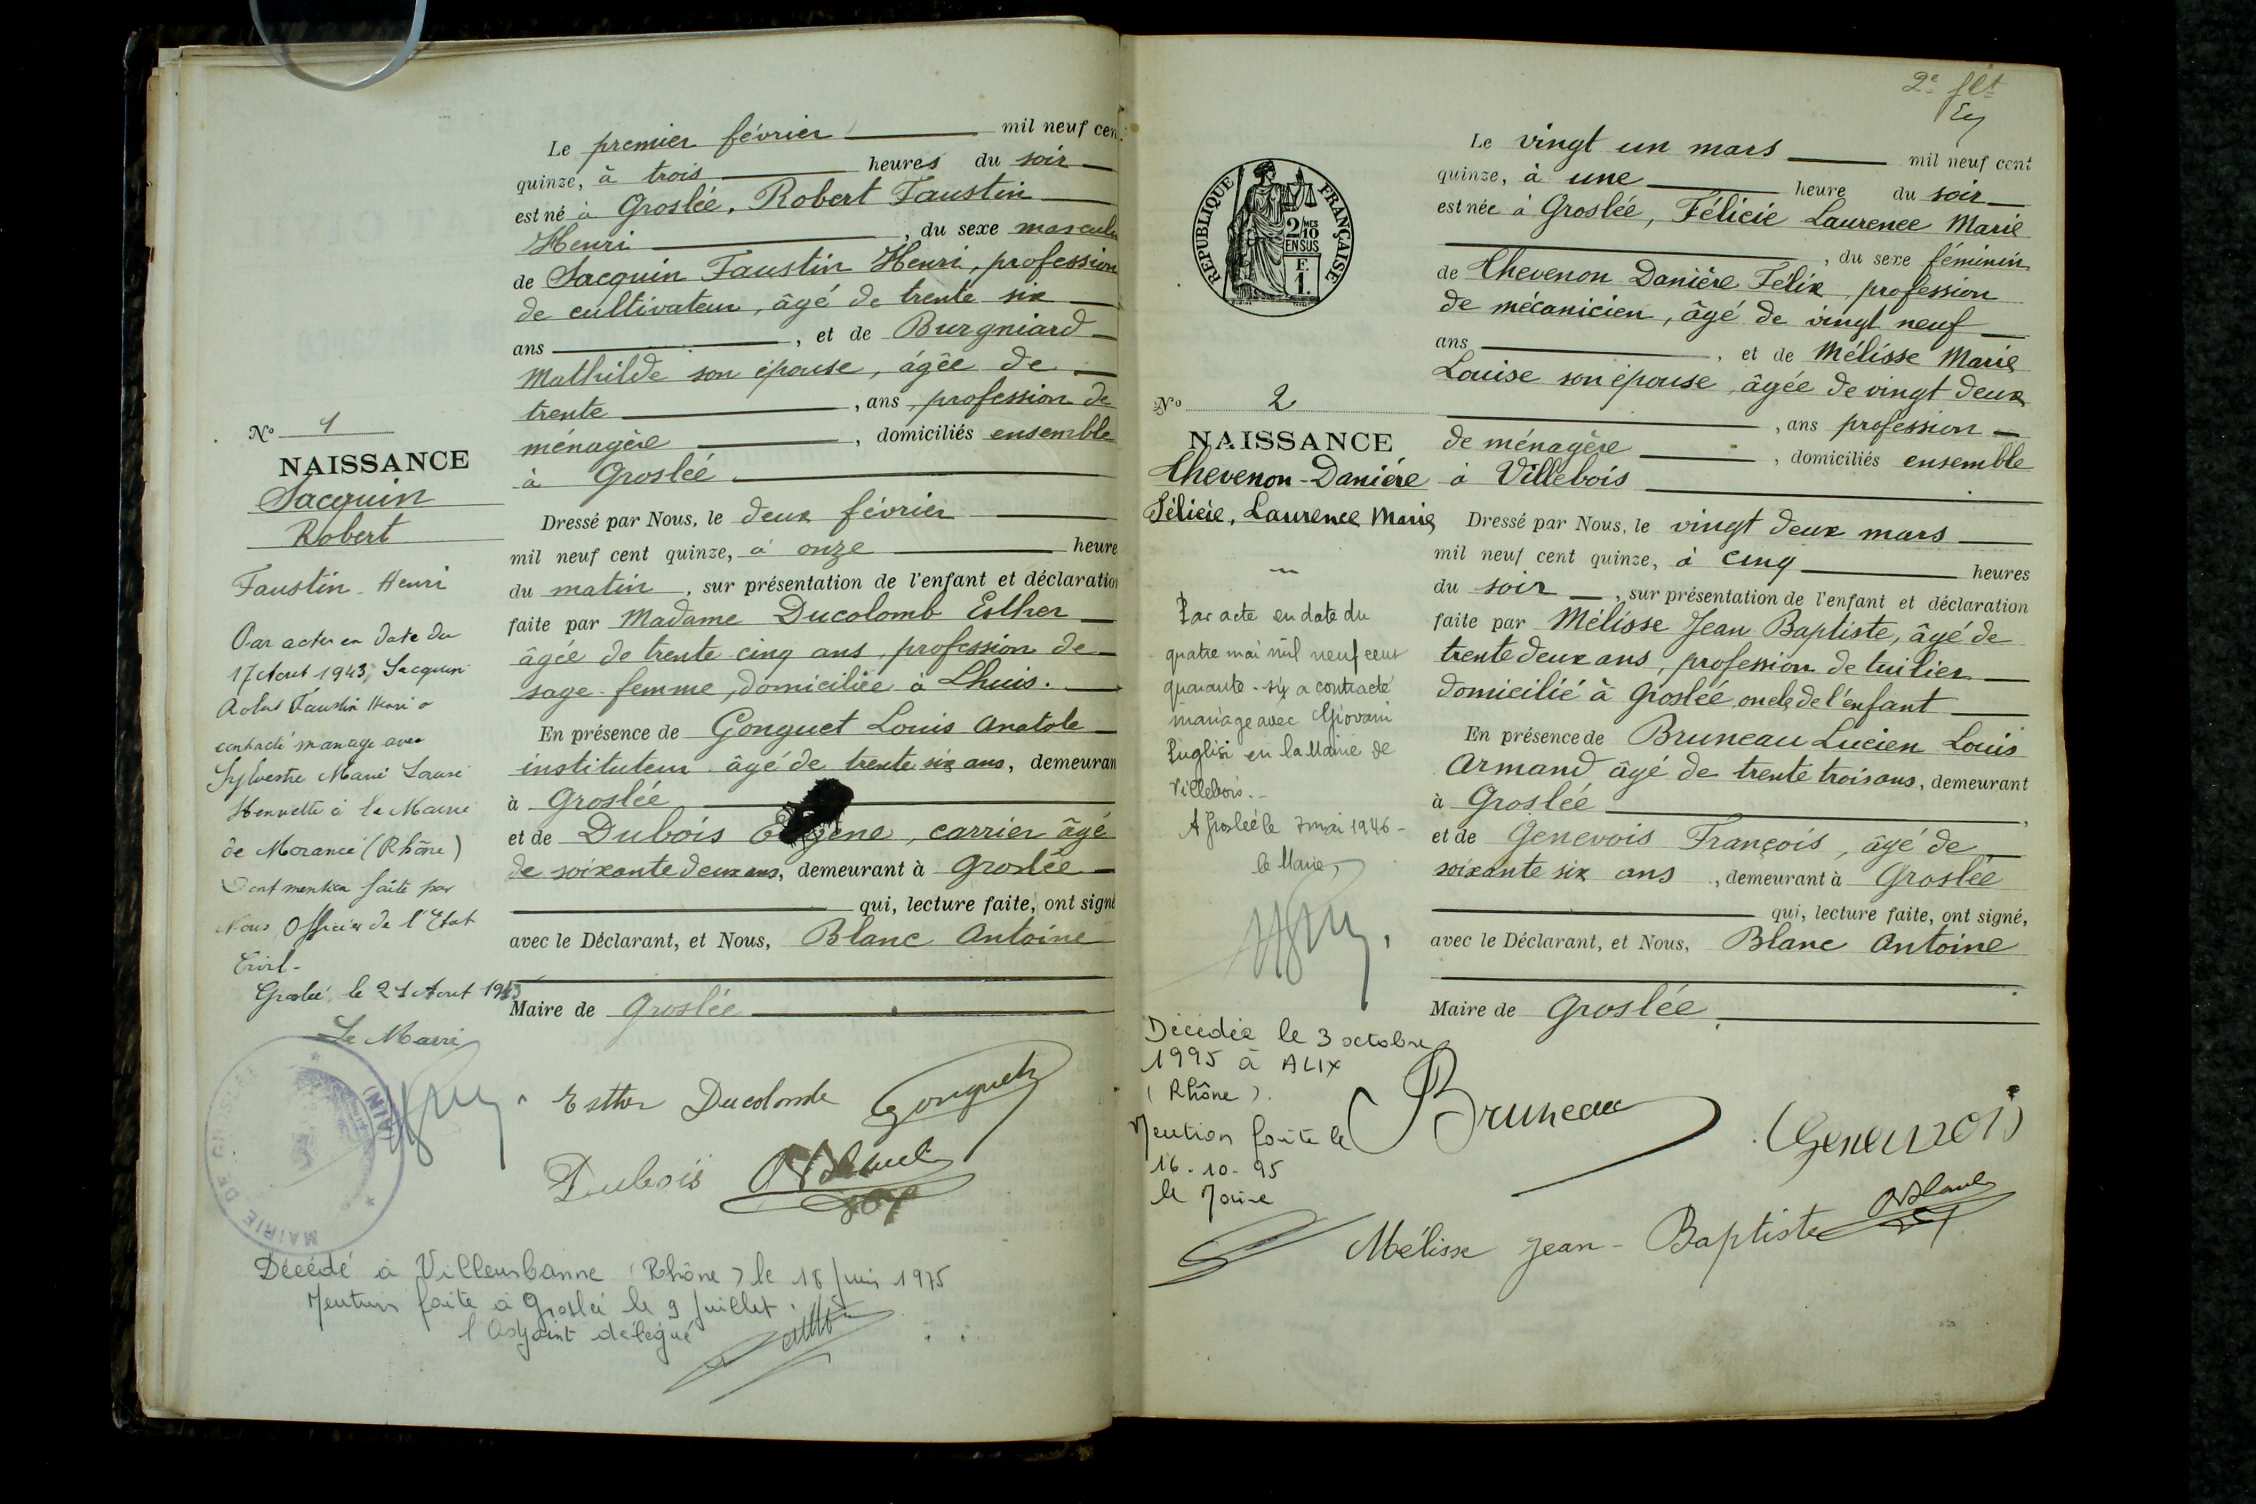 Le premier février mil neuf cent
quinze, à trois heures du soir
est né à Groslée, Robert Faustin
Henri, du sexe masculin
de Sacquin Faustin Henri, profession
de cultivateur, âgé de trente six
ans, et de Burgniard
Mathilde son épouse, âgée de
trente, ans, profession de
ménagère, domiciliés ensemble
à Groslée
Dressé par Nous, le deux février
mil neuf cent quinze, à onze heure
du matin, sur présentation de l'enfant et déclaration
faite par Madame Ducolomb Esther
âgée de trente cinq ans, profession de
sage-femme, domiciliée à Lhuis.
En présence de Gonguet Louis Anatole
instituteur âgé de trente six ans, demeurant
à Groslée
et de Dubois Eugène, carrier âgé
de soixante deux ans, demeurant à Groslée
qui, lecture faite, ont signé
avec le Déclarant, et Nous, Blanc Antoine
Maire de Groslée
Esther Ducolomb Gonguet
Dubois ABlanc
No 1
NAISSANCE
Sacquin
Robert
Faustin-Henri
Par acte en date du
17 Aout 1943, Sacquin
Faustin Henri a
contracté mariage avec
Sylvestre Marie Louise
Henriette à la Mairie
de Morancé (Rhône)
Dont mention faite par
Nous Officier de l'Etat
Civil-
Groslée, le 21 Aout 1943
Le Maire
MAIRIE DE GROSLÉE (AIN)
Décédé à Villeurbanne (Rhône) le 18 juin 1975
Mention faite à Groslée le 9 juillet.
l'Adjoint délégué
2e flt
RÉPUBLIQUE FRANÇAISE
2/10 MES
EN SUS
F.
1.
Le vingt un mars mil neuf cent
quinze, à une heure du soir
est née à Groslée, Félicie Laurence Marie
, du sexe féminin
de Chevenon Danière Félix, profession
de mécanicien, âgé de vingt neuf
ans, et de Mélisse Marie
Louise son épouse, âgée de vingt deux
, ans profession
de ménagère, domiciliés ensemble
à Villebois
Dressé par Nous, le vingt deux mars
mil neuf cent quinze, à cinq heures
du soir, sur présentation de l'enfant et déclaration
faite par Mélisse Jean Baptiste, âgé de
trente deux ans, profession de tuilier
domicilié à Groslée oncle de l'enfant
En présence de Bruneau Lucien Louis
Armand âgé de trente trois ans, demeurant
à Groslée,
et de Genevois François, âgé de
soixante six ans, demeurant à Groslée
qui, lecture faite, ont signé,
avec le Déclarant, et Nous, Blanc Antoine
Maire de Groslée
Bruneau Genevois
Mélisse Jean-Baptiste ABlanc
No 2
NAISSANCE
Chevenon-Danière
Félicie, Laurence Marie
Par acte en date du
quatre mai mil neuf cent
quarante-six a contracté
mariage avec Giovani
Puglisi en la Mairie de
Villebois.-
A Groslée le 7 mai 1946-
le Maire,
Décédée le 3 octobre
1995 à ALIX
(Rhône).
Mention faite le
16-10-95
le Maire